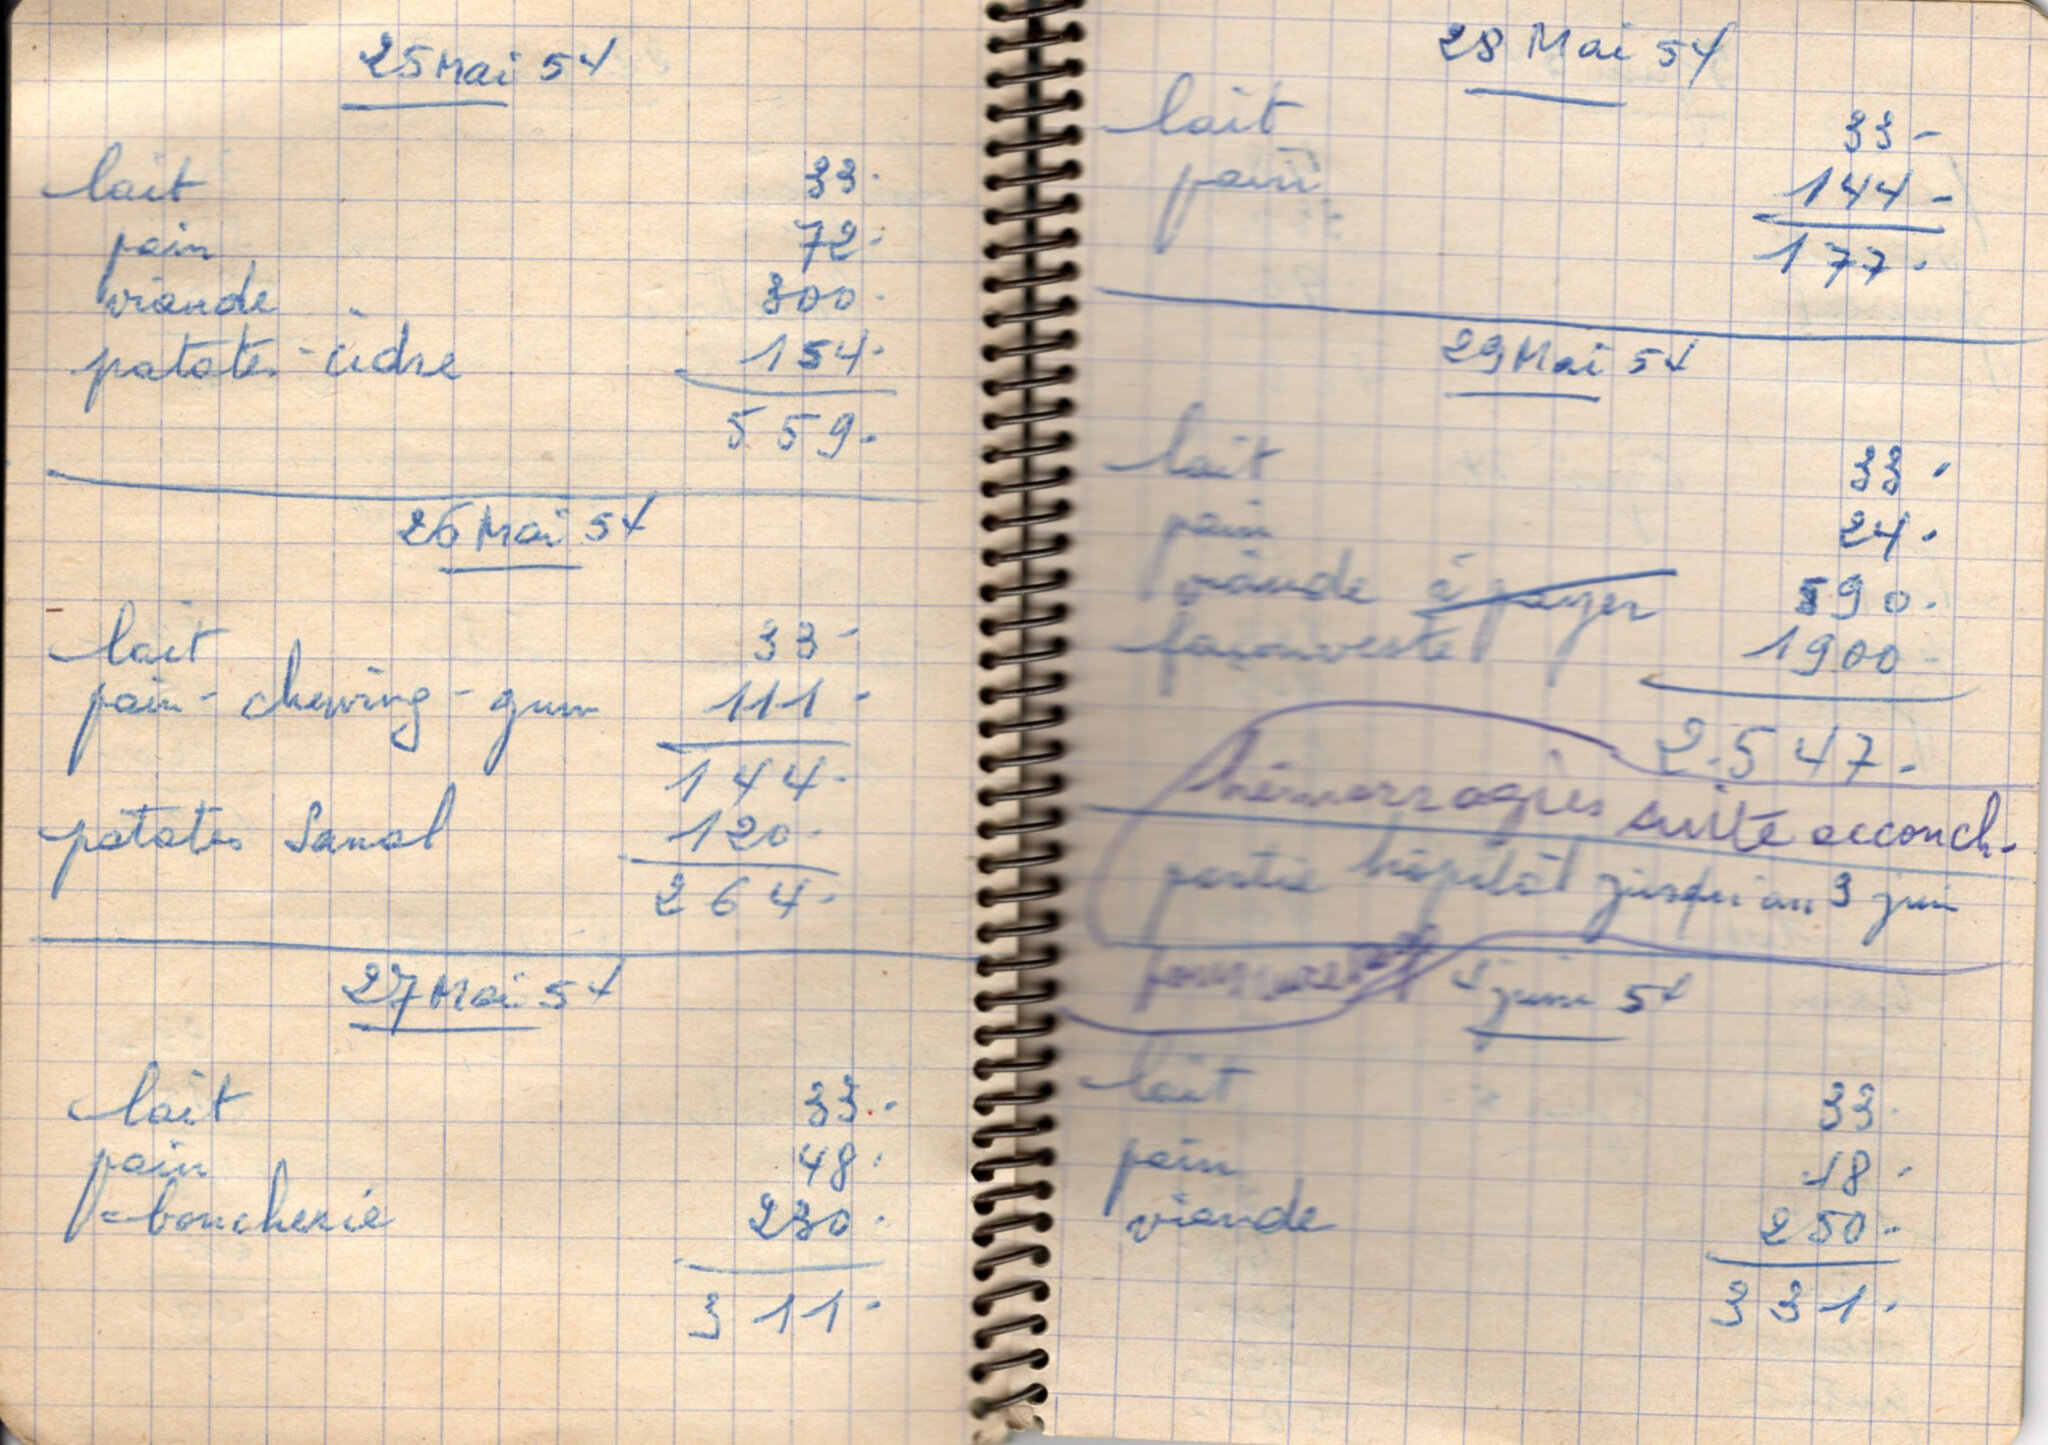 25 Mai 54
lait 33.
pain 72.
viande 300.
patates - cidre 154.
559.
26 Mai 54
lait 33 -
pain - chewing - gum 111 -
144.
patates Sanal 120.
264.
27 Mai 54
lait 33.-
pain 48.
boucherie 230.
311 -
28 Mai 54
lait 33 -
pain 144 -
177.
29 Mai 54
lait 33.
pain 24.
viande à payer 590.
façon veste 1900 -
2.547.
hémorragies suite accouch.
partie hôpital jusqu'au 3 juin
4 juin 54
lait 33.
pain 48.
viande 250.
331.